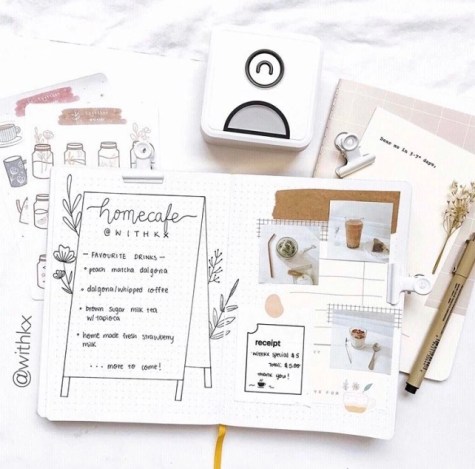 homecafe
@WITHKX
— FAVOURITE DRINKS —
• peach matcha dalgona
• dalgona/whipped coffee
• brown sugar milk tea
w/ tapioca
• home made fresh strawberry
milk
... more to come!
receipt
withkx special $5
total $5.00
thank you!
@withkx